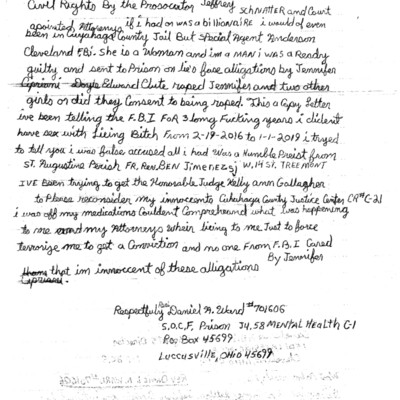 Civil Rights By the Prosocator Jeffrey SCHNATTER and Court
apointed Attorneys if i had on was a billionaire i would of even
been in Cuyahaga County Jail But Special Agent Henderson
Cleveland F.B.i. She is a Woman and im a MAN i was a Ready
guilty and sent to Prison on lie's false alligations by Jennifer
Edward Clute raped Jennifer and two other
girls or did they Consent to being raped. This a Copy Letter
ive been telling the F.B.I FOR 3 long Fucking years i dident
have sex with Lieing Bitch From 2-19-2016 to 1-1-2019 i tryed
to tell you i was false accused all i had was a Humble Preist from
ST. Augustine Perish FR. Rev. BEN Jimenez sj W.14 ST. TREEMONT
IVE Been trying to get the Honorable Judge Kelly ann Gallagher
to Please reconsider my innocents Cukahaga County Justice Center CR#C-21
i was off my medications Couldent Comprehend what was happening
to me and my Attorneys where lieing to me Just to force
terrorize me to get a Conviction and no one From F.B.I Cared
By Jennifer
that im innocent of these alligations
Respectfully Daniel A. Ward #701606
S.O.C.F. Prison J4.58 MENTAL HEALTH C-1
P.o. Box 45699
LUCCUSVILLE, OHIO 45699